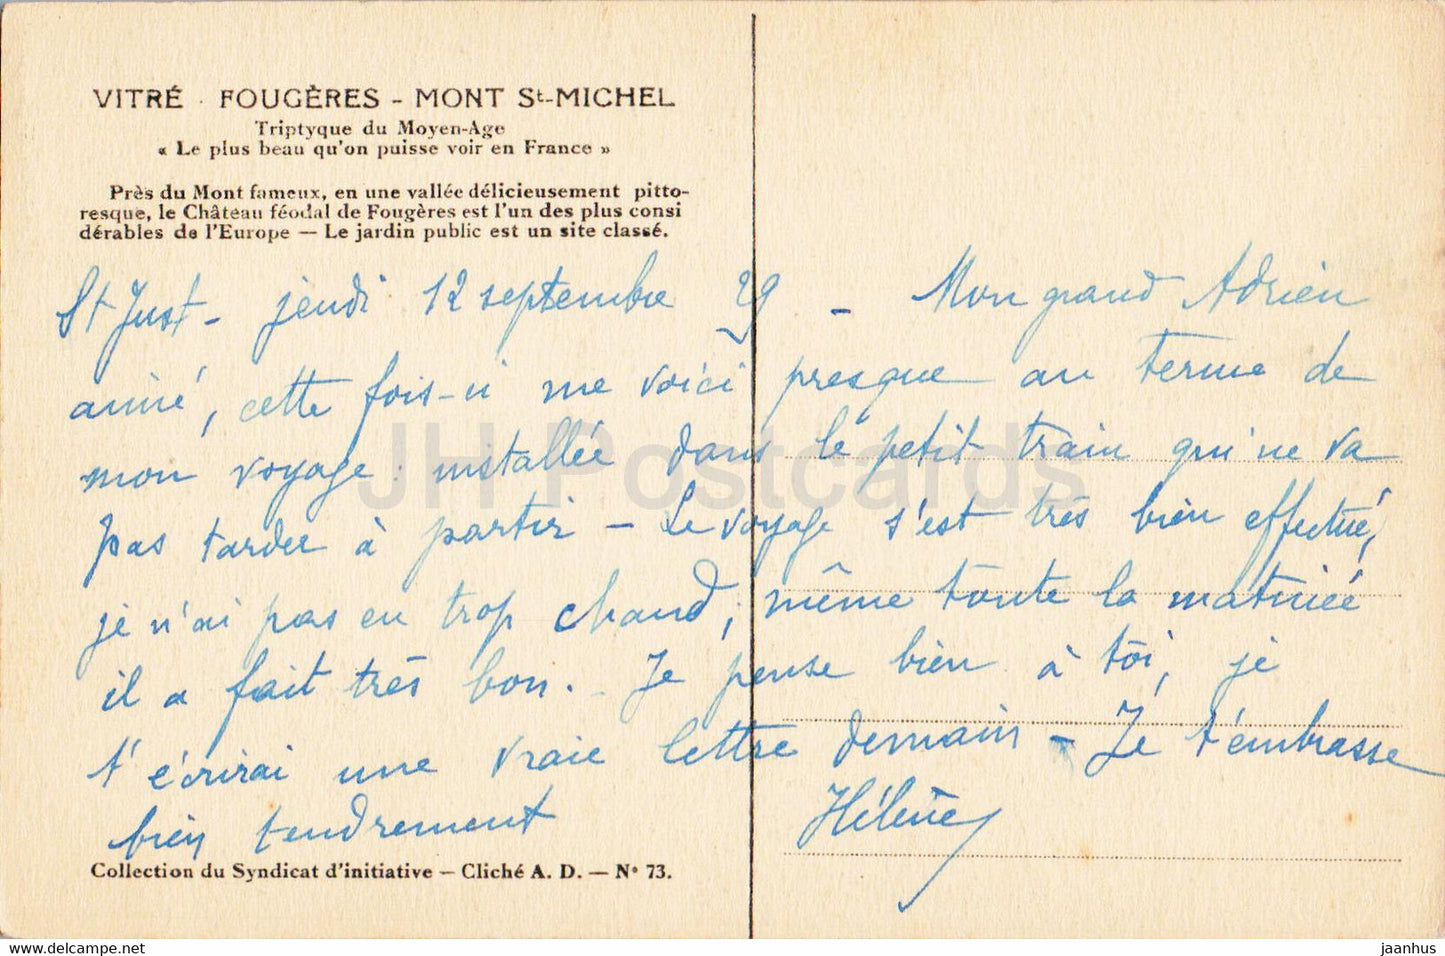 VITRÉ - FOUGÈRES - MONT St-MICHEL
Triptyque du Moyen-Age
« Le plus beau qu'on puisse voir en France »
Près du Mont fameux, en une vallée délicieusement pitto-
resque, le Château féodal de Fougères est l'un des plus consi
dérables de l'Europe — Le jardin public est un site classé.
St Just - jeudi 12 septembre 29 - Mon grand Adrien
aimé, cette fois-ci me voici presque au terme de
mon voyage : installée dans le petit train qui ne va
pas tarder à partir - Le voyage s'est très bien effectué,
je n'ai pas eu trop chaud, même toute la matinée
il a fait très bon. - Je pense bien à toi, je
t'écrirai une vraie lettre demain - Je t'embrasse
bien tendrement Hélène
Collection du Syndicat d'initiative — Cliché A. D. — N° 73.
JH Postcards
jaanhus @ www.delcampe.net